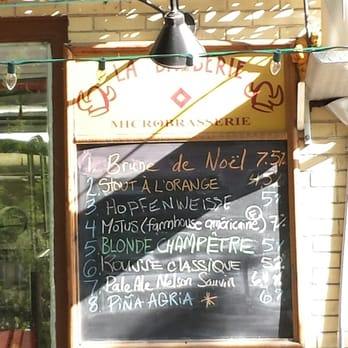 LA
MICROBRASSERIE
1. Brune de Noël 7.5%
2. STOUT À L'ORANGE
3. HOPFENWEISSE 5%
4. MOTUS (farmhouse américaine) 7%
5. BLONDE CHAMPÊTRE 5%
6. KOUNNE CLASSIQUE 5%
7. Pale Ale Nelson Sauvin 6
8. PIÑA AGRIA 6%